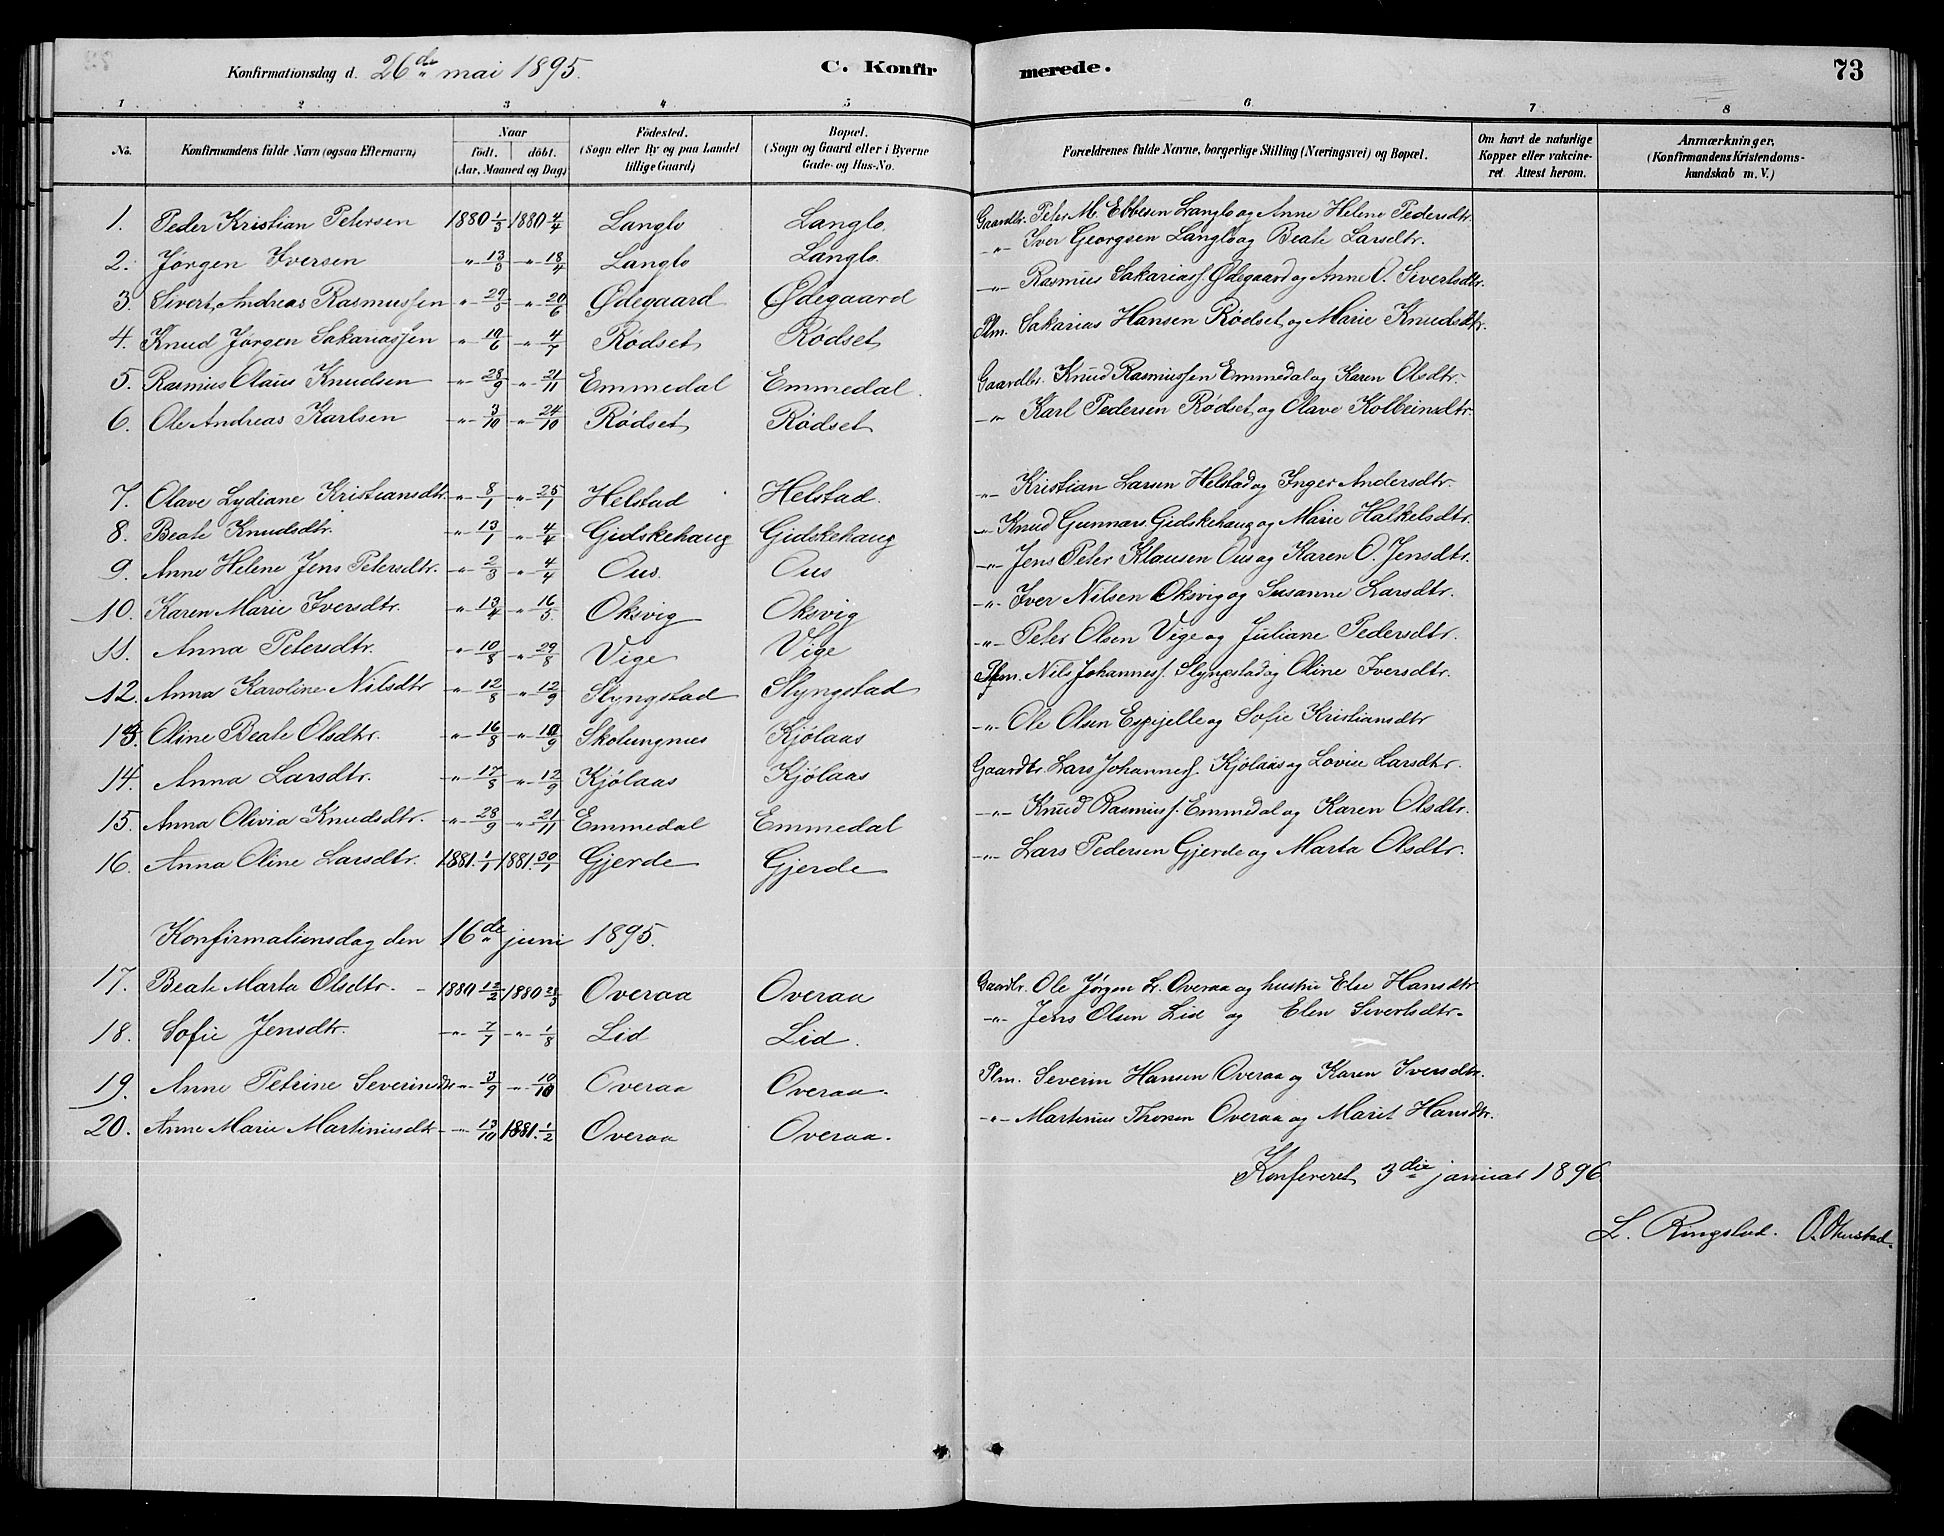 Konfirmationsdag d. 26de mai 1895. C. Konfirmerede. 73
1 2 3 4 5 6 7 8
No. Konfirmandens fulde Navn (ogsaa Efternavn) Naar født. døbt. (Aar, Maaned og Dag) Fødested. (Sogn eller By og paa Landet tillige Gaard) Bopæl. (Sogn og Gaard eller i Byerne Gade- og Hus-No. Forældrenes fulde Navne, borgerlige Stilling (Næringsvei) og Bopæl. Om havt de naturlige Kopper eller vakcineret. Attest herom. Anmærkninger, (Konfirmandens Kristendomskundskab m. V.)
1. Peder Kristian Petersen 1880 1/3 1880 4/4 Langlo Langlo Gaardbr. Peter M. Ebbesen Langlo og Anne Helene Pedersdtr.
2. Jørgen Iversen -"- 13/3 -"- 18/4 Langlo Langlo -"- Iver Georgsen Langlo og Beate Larsdtr.
3. Sivert Andreas Rasmussen -"- 29/5 -"- 20/6 Ødegaard Ødegaard -"- Rasmus Sakarias. Ødegaard og Anne O. Sivertsdtr.
4. Knud Jørgen Sakariassen -"- 19/6 -"- 4/7 Rødset Rødset Plm. Sakarias Hansen Rødset og Marie Knudsdtr.
5. Rasmus Olaus Knudsen -"- 28/9 -"- 21/11 Emmedal Emmedal. Gaardbr. Knud Rasmussen Emmedal og Karen Olsdtr.
6. Ole Andreas Karlsen -"- 3/10 -"- 24/10 Rødset Rødset -"- Karl Pedersen Rødset og Olave Kolbeinsdtr.
7. Olave Lydiane Kristiansdtr. -"- 8/1 -"- 25/1 Helstad Helstad. -"- Kristian Larsen Helstad og Inger Andersdtr.
8. Beate Knudsdtr. -"- 13/1 -"- 4/4 Gidskehaug Gidskehaug -"- Knud Gunnars. Gidskehaug og Marie Halkelsdtr.
9. Anne Helene Jens Petersdtr. -"- 2/3 -"- 4/4 Ous. Ous -"- Jens Peter Klausen Ous og Karen O. Jensdtr.
10. Karen Marie Iversdtr. -"- 13/4 -"- 16/5. Oksvig Oksvig -"- Iver Nilsen Oksvig og Susanne Larsdtr.
11. Anna Petersdtr. -"- 10/8 -"- 29/8 Vige Vige -"- Peter Olsen Vige og Juliane Pedersdtr.
12. Anna Karoline Nilsdtr -"- 12/8 -"- 12/9 Slyngstad Slyngstad Plm. Nils Johannes. Slyngstad og Oline Iversdtr.
13. Oline Beate Olsdtr. -"- 16/8 -"- /9 Skolungnes Kjølaas -"- Ole Olsen og Sofie Kristiansdtr
14. Anna Larsdtr. -"- 17/8 -"- 12/9 Kjølaas Kjølaas Gaardbr. Lars Johannes. Kjølaas og Lovise Larsdtr.
15. Anna Olivia Knudsdtr. -"- 28/9 -"- 21/11 Emmedal Emmedal -"- Knud Rasmus. Emmedal og Karen Olsdtr.
16. Anna Oline Larsdtr. 1881. 1/1 1881. 30/1 Gjerde Gjerde -"- Lars Pedersen Gjerde og Marta Olsdtr.
Konfirmationsdag den 16de juni 1895.
17. Beate Marta Olsdtr. - 1880 12/2 1880 28/3 Overaa Overaa Gaardbr. Ole Jørgen L. Overaa og hustru Else Hansdtr
18. Sofie Jensdtr. -"- 7/7 -"- 1/8 Lid Lid. -"- Jens Olsen Lid og Elen Sivertsdtr.
19. Anne Petrine Severinsdtr -"- 3/9 -"- 10/10 Overaa Overaa. Plm. Severin Hansen Overaa og Karen Iversdtr.
20. Anne Marie Martinusdtr -"- 13/10 1881. 1/2 Overaa Overaa. -"- Martinus Thorsen Overaa og Marit Hansdtr.
Konfereret 3die januar 1896.
L. Ringstad.